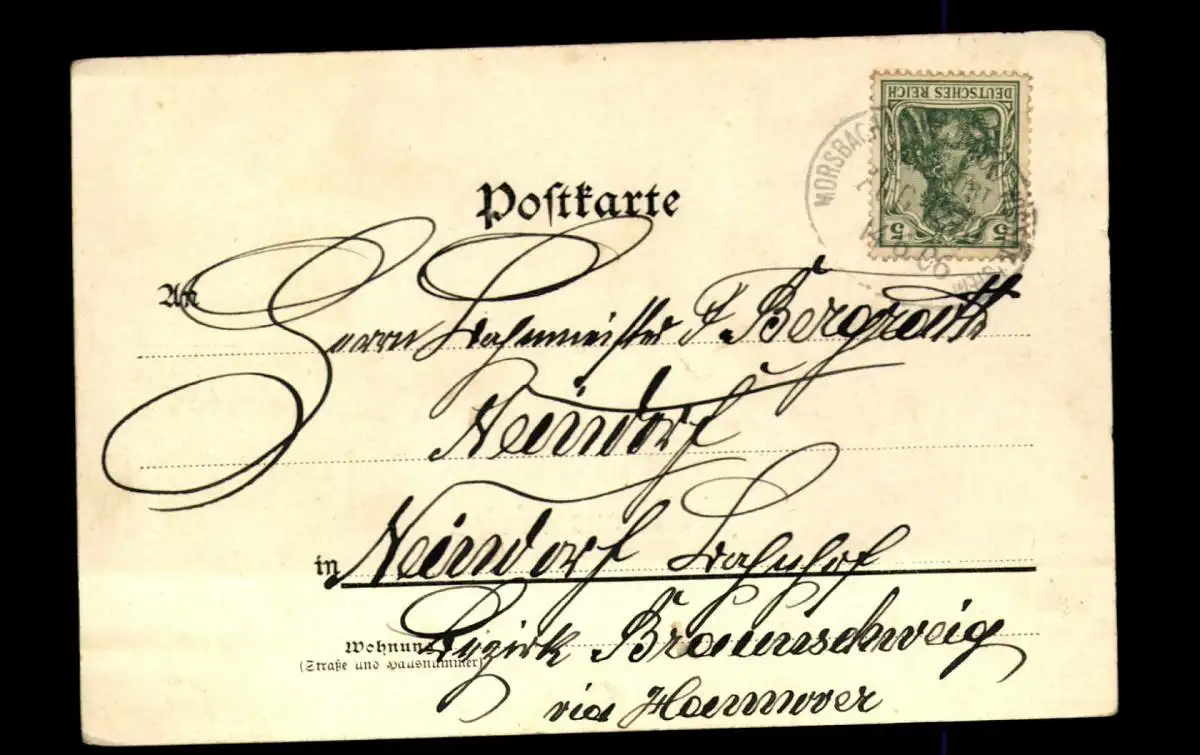 DEUTSCHES REICH
5 5
MORSBACH
06
Postkarte
An
Herrn Bahnmeister F. Bergrath
Neindorf
in Neindorf Bahnhof
Wohnung
(Straße und Hausnummer)
Bezirk Braunschweig
via Hannover